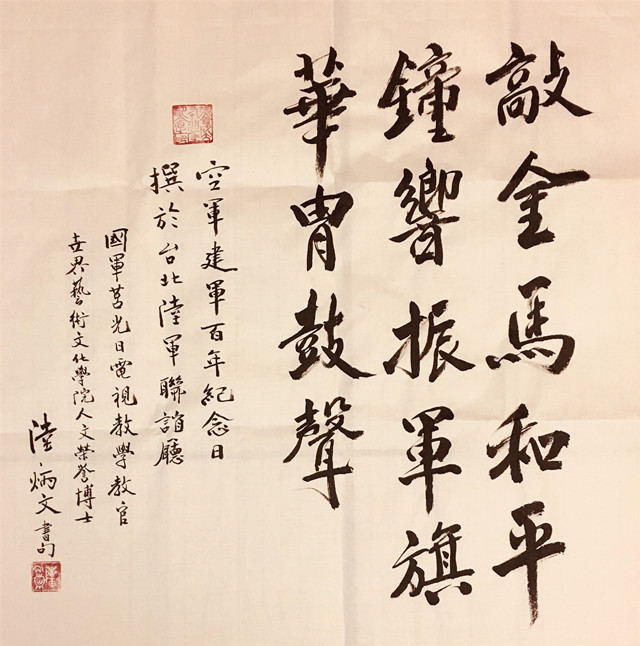 敲金馬和平
鐘響振軍旗
華胄鼓聲
空軍建軍百年紀念日
撰於台北陸軍聯誼廳
國軍莒光日電視教學教官
世界藝術文化學院人文榮譽博士
陸炳文書句